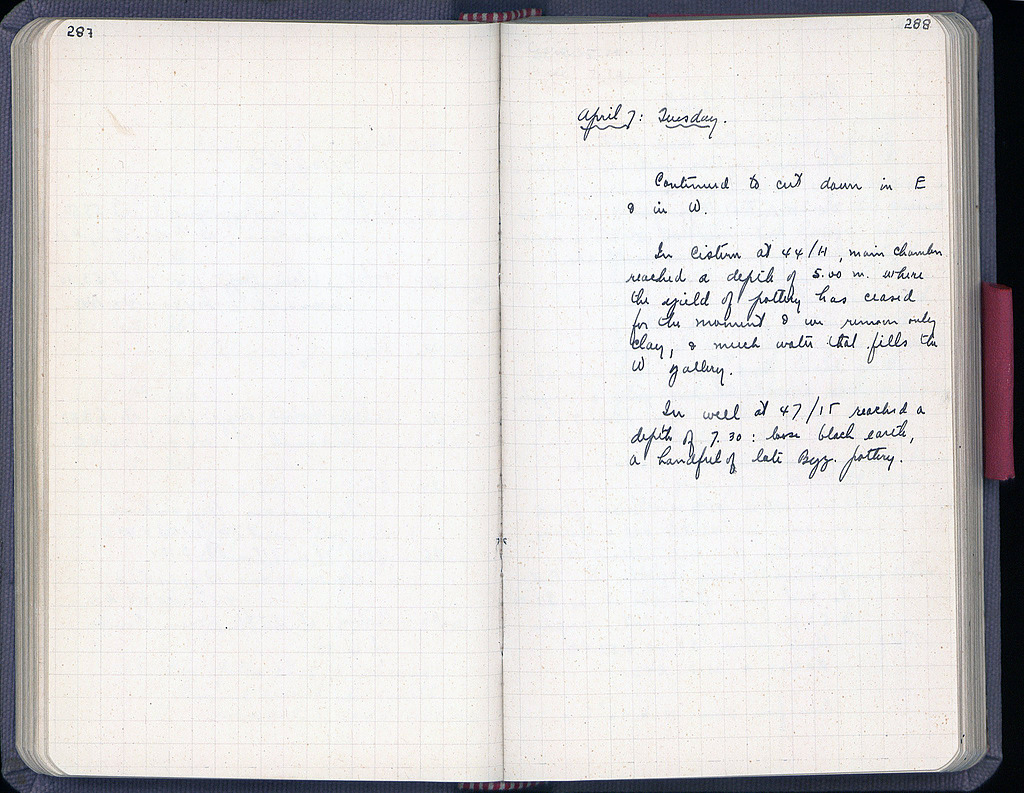 287
288
April 7: Tuesday.
Continued to cut down in E
& in W.
In cistern at 44/H, main chamber
reached a depth of 5.00 m. where
the yield of pottery has ceased
for the moment & we remove only
clay, & much water that fills the
W gallery.
In well at 47/ΙΓ reached a
depth of 7.30: loose black earth,
a handful of late Byz. pottery.